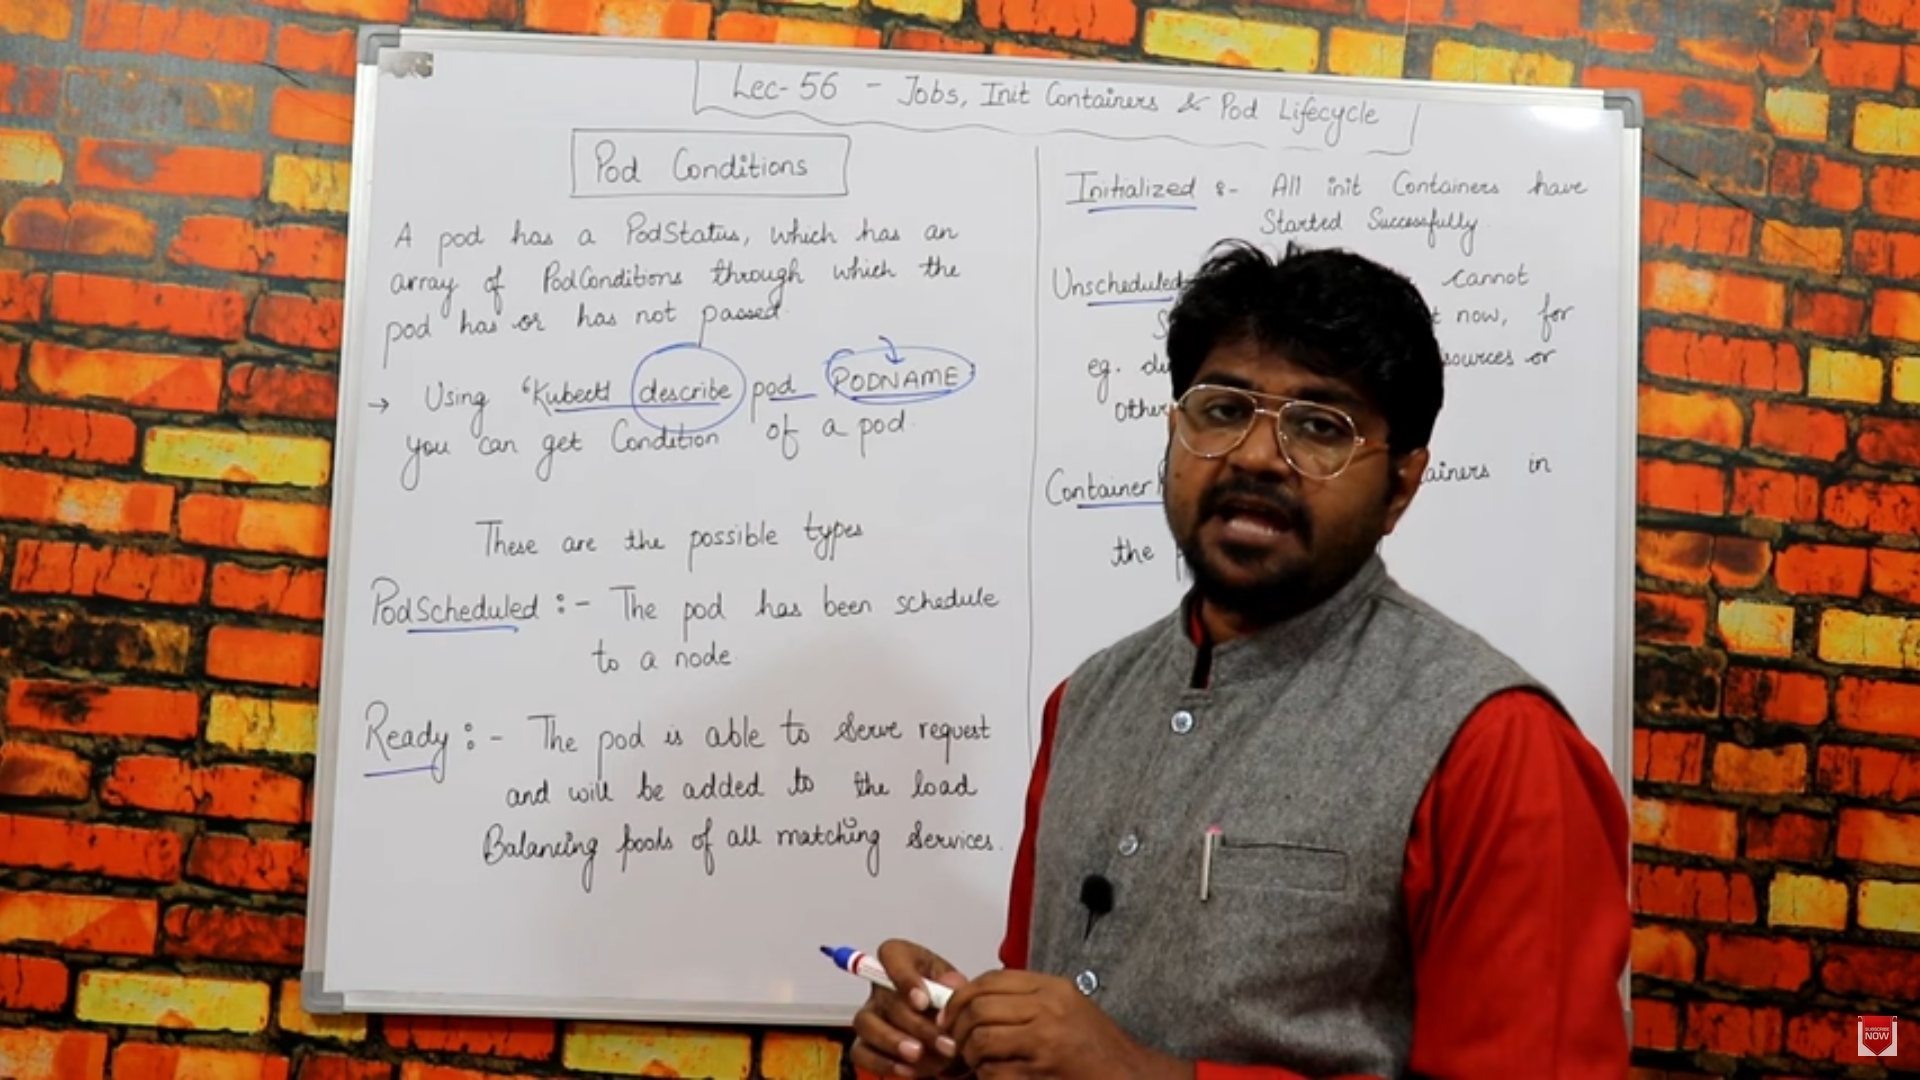 Lec-56 - Jobs, Init Containers & Pod Lifecycle
Pod Conditions
A pod has a PodStatus, which has an
array of PodConditions through which the
pod has or has not passed.
→ Using 'Kubectl describe pod PODNAME
you can get Condition of a pod.
These are the possible types
PodScheduled :- The pod has been schedule
to a node
Ready :- The pod is able to serve request
and will be added to the load
Balancing pools of all matching services.
Initialized :- All init Containers have
Started Successfully.
Unscheduled cannot
now, for
eg. or
Container in
the
SUBSCRIBE
NOW